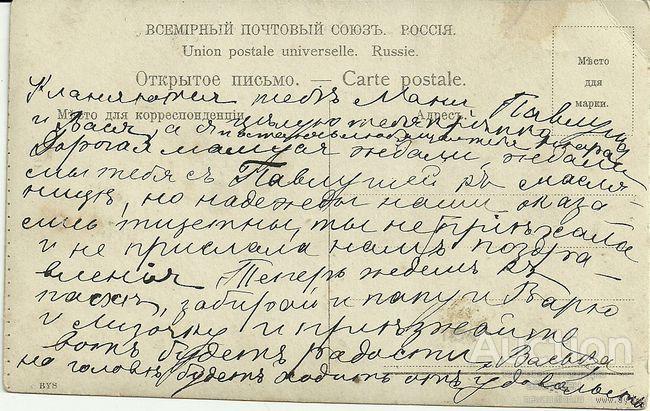 ВСЕМІРНЫЙ ПОЧТОВЫЙ СОЮЗЪ. РОССІЯ.
Union postale universelle. Russie.
Открытое письмо. — Carte postale.
Мѣсто
для
марки.
Кланяются тебѣ Маня Павлуша
Мѣсто для корреспонденціи Адресъ.
и Вася, а я цѣлую тебя крѣпко
Дорогая мамуся ждали, ждали
мы тебя съ Павлушей къ масля-
ницѣ, но надежды наши оказа
лись тщетны, ты не приѣхала
и не прислала намъ поздра-
вленія. Теперь ждемъ къ
пасхѣ, забирай и папу и Варю
и Лизочку и приѣзжайте
вотъ будетъ радости, Васька
на головѣ будетъ ходить отъ удовольств
BYS
Auction